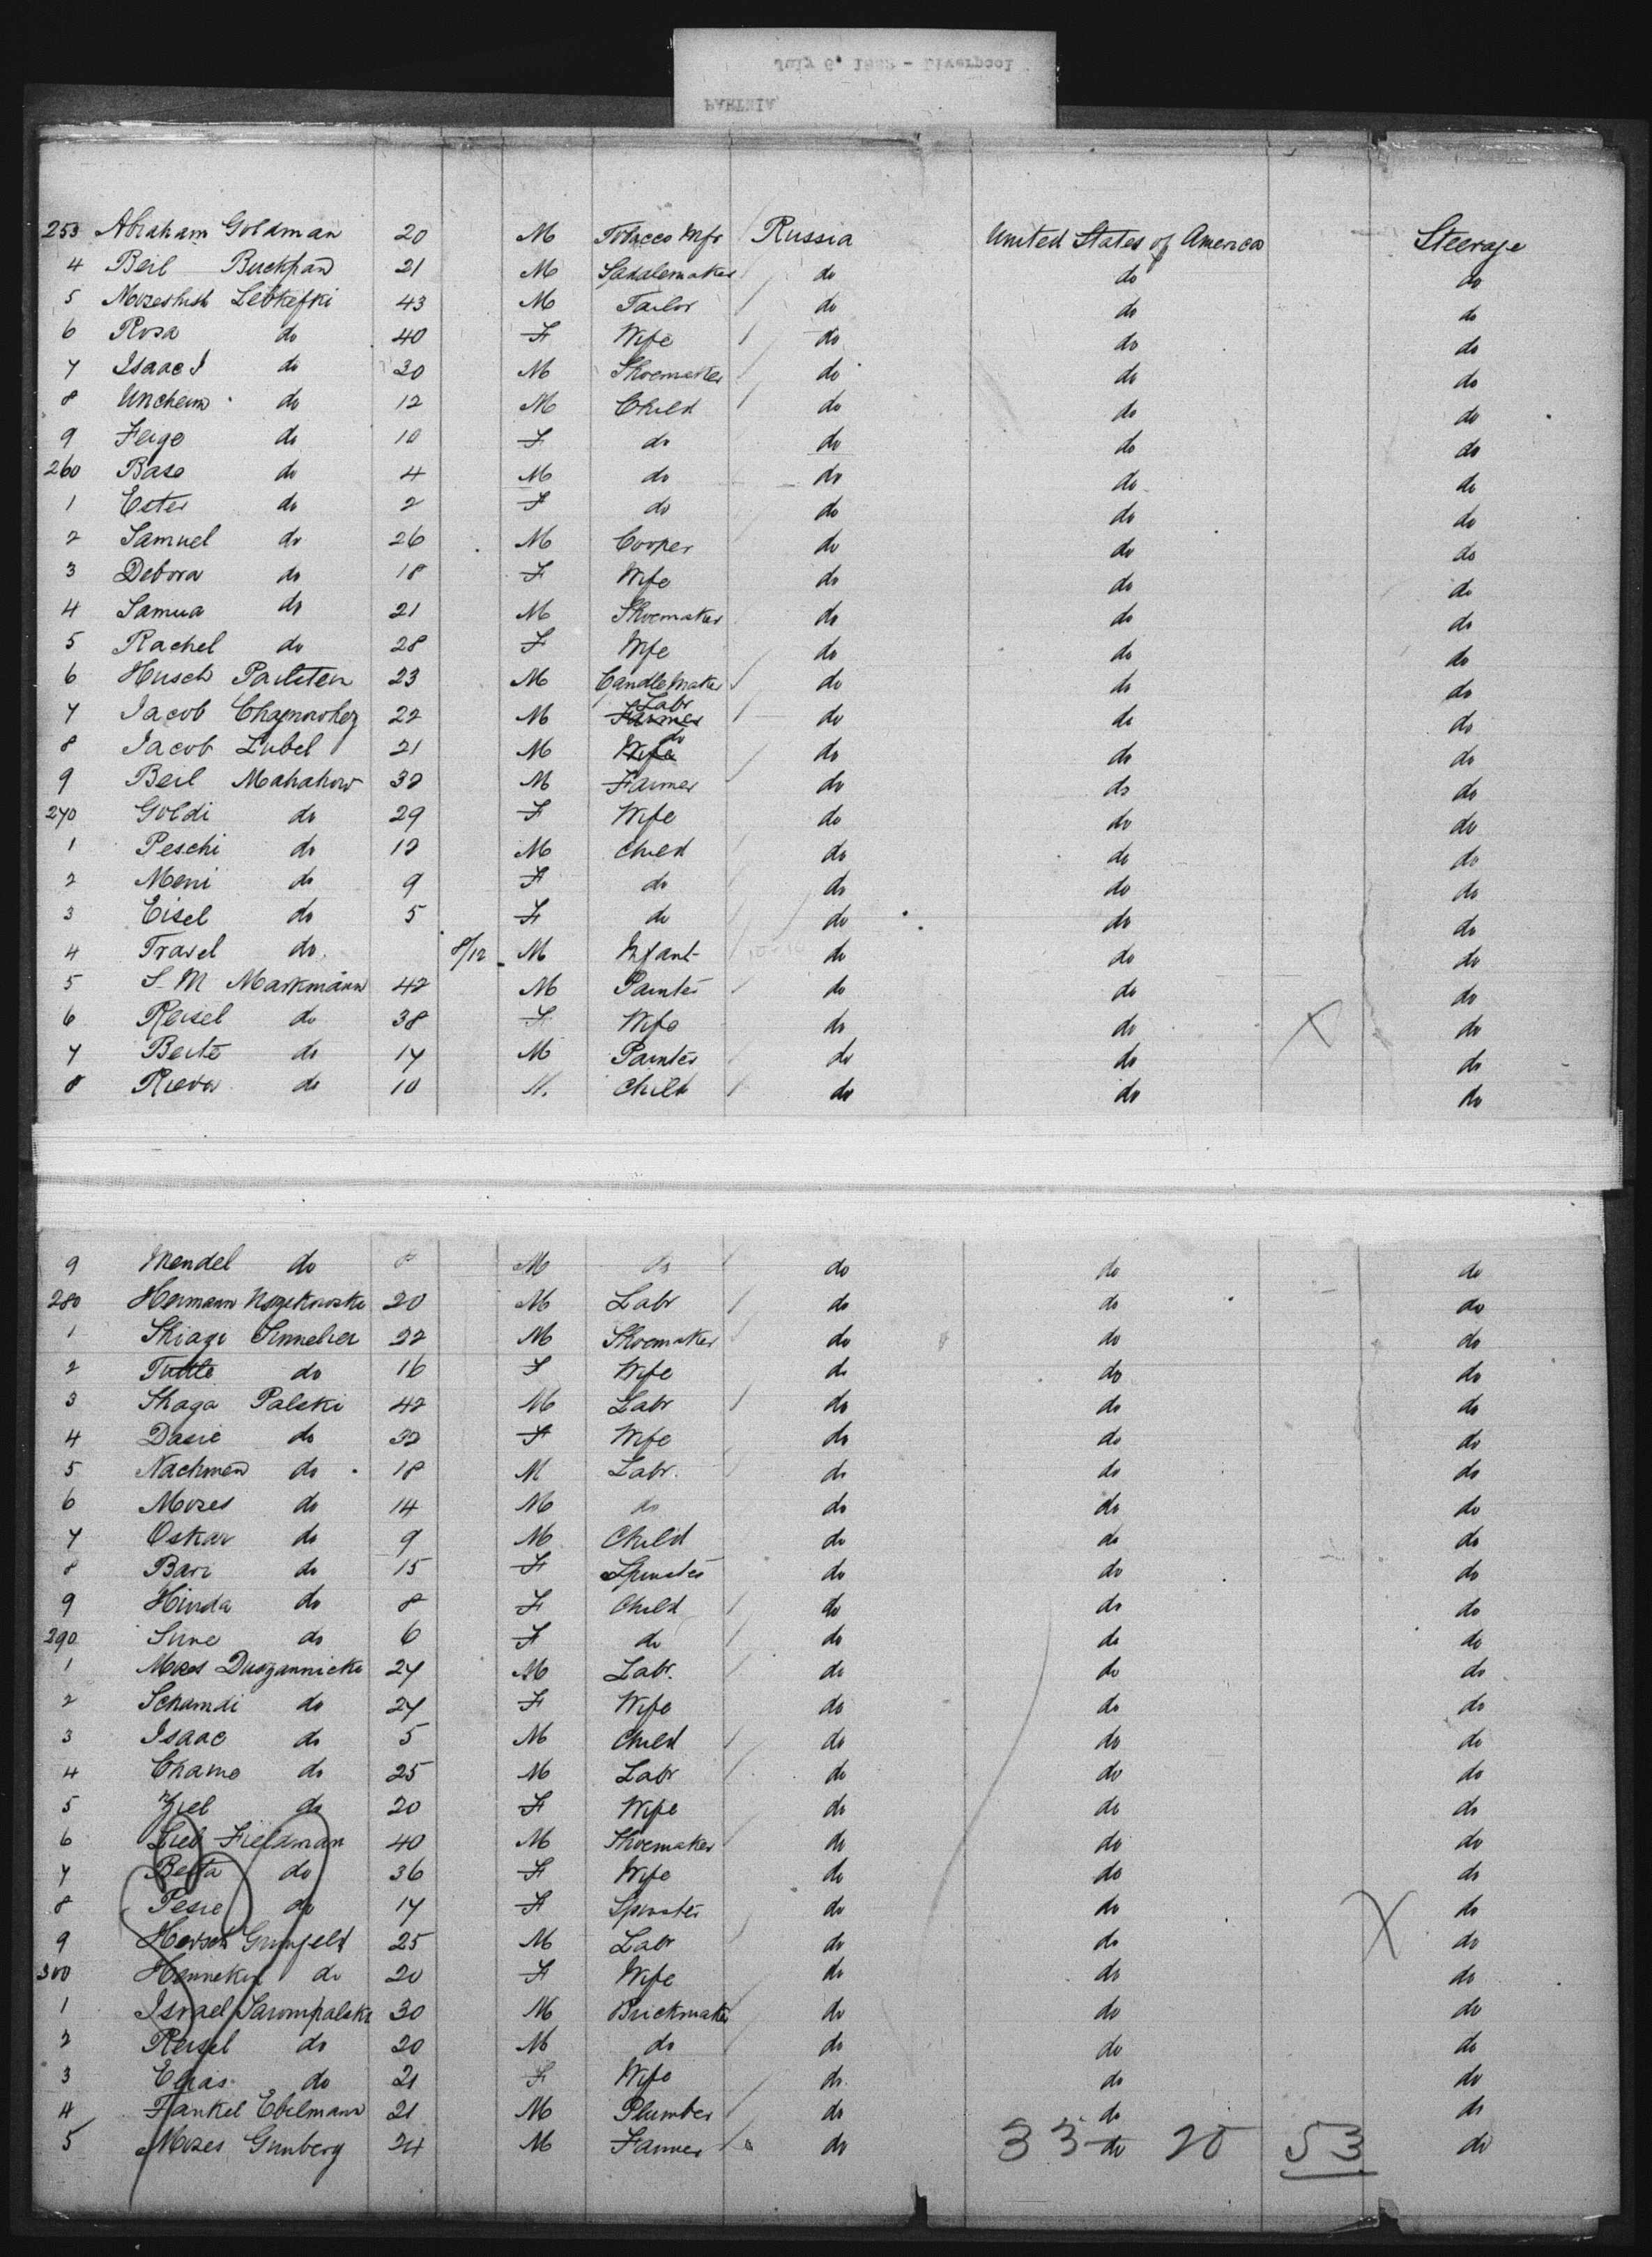 July 6, 1882 - Liverpool
PARTHIA
253 Abraham Goldman 20 M Tobacco Mfr Russia United States of America Steerage
4 Beil Buckhan 21 M Saddlemaker do do do
5 Mozeshish Lebkefski 43 M Tailor do do do
6 Rosa do 40 F Wife do do do
7 Isaac I do 30 M Shoemaker do do do
8 Uncheim do 12 M Child do do do
9 Feige do 10 F do do do do
260 Base do 4 M do do do do
1 Ester do 2 F do do do do
2 Samuel do 26 M Cooper do do do
3 Debora do 18 F Wife do do do
4 Samua do 21 M Shoemaker do do do
5 Rachel do 28 F Wife do do do
6 Husch 23 M Candlemaker do do do
7 Jacob 22 M Farmer Labr do do do
8 Jacob Lubel 21 M Wife do do do do
9 Beil Mahahow 32 M Farmer do do do
270 Goldi do 29 F Wife do do do
1 Peschi do 12 M Child do do do
2 Meni do 9 F do do do do
3 Eisel do 5 F do do do do
4 Travel do 8/12 M Infant do do do
5 S. M Markmann 42 M Painter do do do
6 Reisel do 38 F Wife do do do
7 Beite do 17 M Painter do do do
8 Rieva do 10 M. Child do do do
9 Mendel do 8 M do do do do
280 Hermann 20 M Labr do do do
1 Shiage 22 M Shoemaker do do do
2 Tuttle do 16 F Wife do do do
3 Shaga Palski 42 M Labr do do do
4 Dasie do 32 F Wife do do do
5 Nachmen do 18 M Labr. do do do
6 Mozes do 14 M do do do do
7 Oskar do 9 M Child do do do
8 Bari do 15 F Spinster do do do
9 Hinda do 8 F Child do do do
290 Sure do 6 F do do do do
1 Mozes Duszannicki 27 M Labr. do do do
2 Schamdi do 27 F Wife do do do
3 Isaac do 5 M Child do do do
4 Chame do 25 M Labr do do do
5 Ziel do 20 F Wife do do do
6 Lieb Fieldman 40 M Shoemaker do do do
7 Berta do 36 F Wife do do do
8 Pesie do 17 F Spinster do do do
9 Hersch Grunfeld 25 M Labr do do do
300 Henneken do 20 F Wife do do do
1 Israel Sarompalski 30 M Brickmaker do do do
2 Reisel do 20 M do do do do
3 Elias do 21 F Wife do do do
4 Fankel Ebelmann 21 M Plumber do do do
5 Mozes Grunberg 24 M Farmer do do do
33 20 53